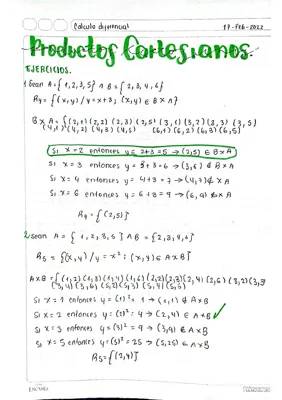 Cálculo diferencial 17-Feb-2022
Productos Cartesianos.
EJERCICIOS.
1. Sean A={1,2,3,5} ∧ B={2,3,4,6}
R4={(x,y)/y=x+3; (x,y)∈B×A}
B×A={(2,1)(2,2)(2,3)(2,5)(3,1)(3,2)(3,3)(3,5)
(4,1)(4,2)(4,3)(4,5) (6,1)(6,2)(6,3)(6,5)
Si x=2 entonces y= 2+3=5 → (2,5)∈B×A
Si x=3 entonces y= 3+3=6 → (3,6)∉B×A
Si x=4 entonces y= 4+3=7 → (4,7)∉×A
Si x=6 entonces y= 6+3=9 → (6,9)∉×A
R4={(2,5)}
2. sean A={1,2,3,5} ∧ B={2,3,4,6}
R5={(x,y)/y=x²; (x,y)∈A×B}
A×B={(1,2)(1,3)(1,4)(1,6)(2,2)(2,3)(2,4)(2,6)(3,2)(3,3)
(3,4)(3,6)(5,2)(5,3)(5,4)(5,6)
Si x=1 entonces y=(1)²=1 → (1,1)∉A×B
Si x=2 entonces y=(2)²=4 → (2,4)∈A×B ✓
Si x=3 entonces y=(3)²=9 → (3,9)∉A×B
Si x=5 entonces y=(5)²=25 → (5,25)∉A×B
R5={(2,4)}